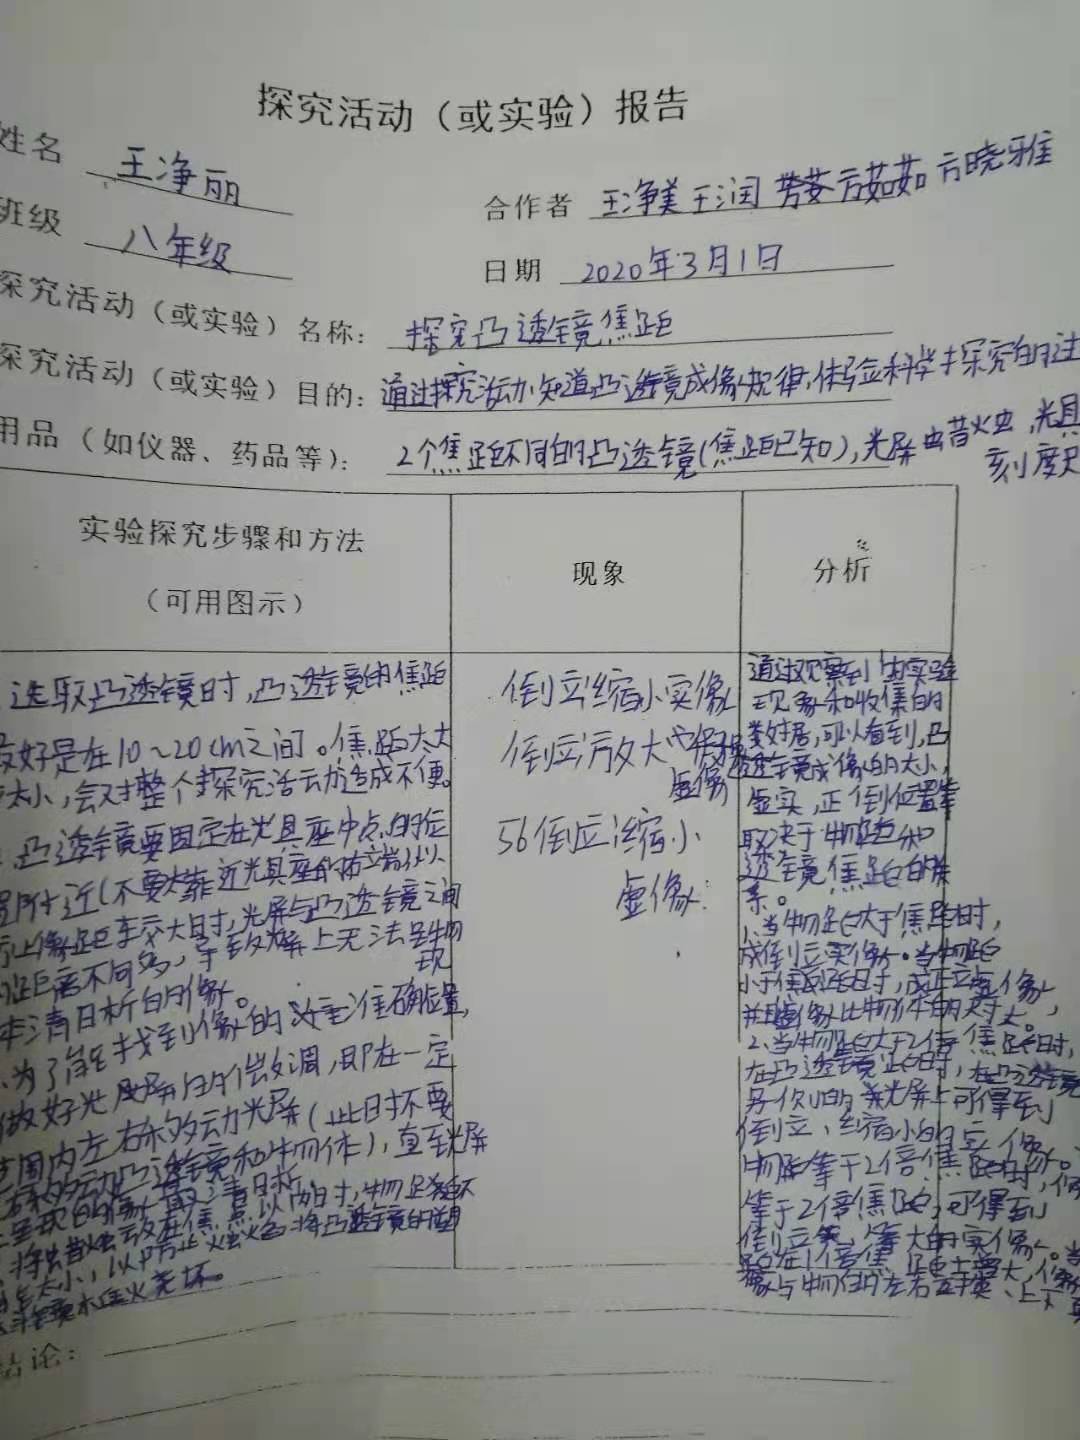 探究活动（或实验）报告
姓名 王净丽
合作者 王净美 王润 方茹茹 方晓雅
班级 八年级
日期 2020年3月1日
探究活动（或实验）名称： 探究凸透镜焦距
探究活动（或实验）目的： 通过探究活动,知道凸透镜成像规律,体验科学探究的过
用品（如仪器、药品等）： 2个焦距不同的凸透镜(焦距已知),光屏 蜡烛,光具
刻度尺
实验探究步骤和方法
（可用图示）
现象
分析
选取凸透镜时,凸透镜的焦距
最好是在10~20cm之间。焦距太大
太小,会对整个探究活动造成不便。
凸透镜要固定在光具座中点的位
置附近(不要太靠近光具座的
像距较大时,光屏与凸透镜之间
距离不同多,导致光屏上无法呈现物
体清晰的像。
为了能找到像的准确位置,
做好光屏的微调,即在一定
范围内左右移动光屏(此时不要
移动凸透镜和物体),直至光屏
上呈现的像最清晰。
将蜡烛放在焦点以内时,物距
太小,以防止烛火将凸透镜的
烧坏。
倒立缩小实像
倒立放大
虚像
56倒立缩小
虚像
通过观察到的实验
现象和收集的
数据,可以看到,凸
透镜成像的大小,
虚实,正倒位置等
取决于物距和
透镜焦距的关
系。
1、当物距大于焦距时,
成倒立实像。当物距
小于焦距时,成正立虚像,
并且虚像比物体的尺寸大。
2、当物距大于2倍焦距时,
在凸透镜
另一侧的光屏上可得到
倒立、缩小的实像。
物距等于2倍焦距时,
等于2倍焦距,可得到
倒立、等大的实像。当
像与物的左右互换、上下
结论：